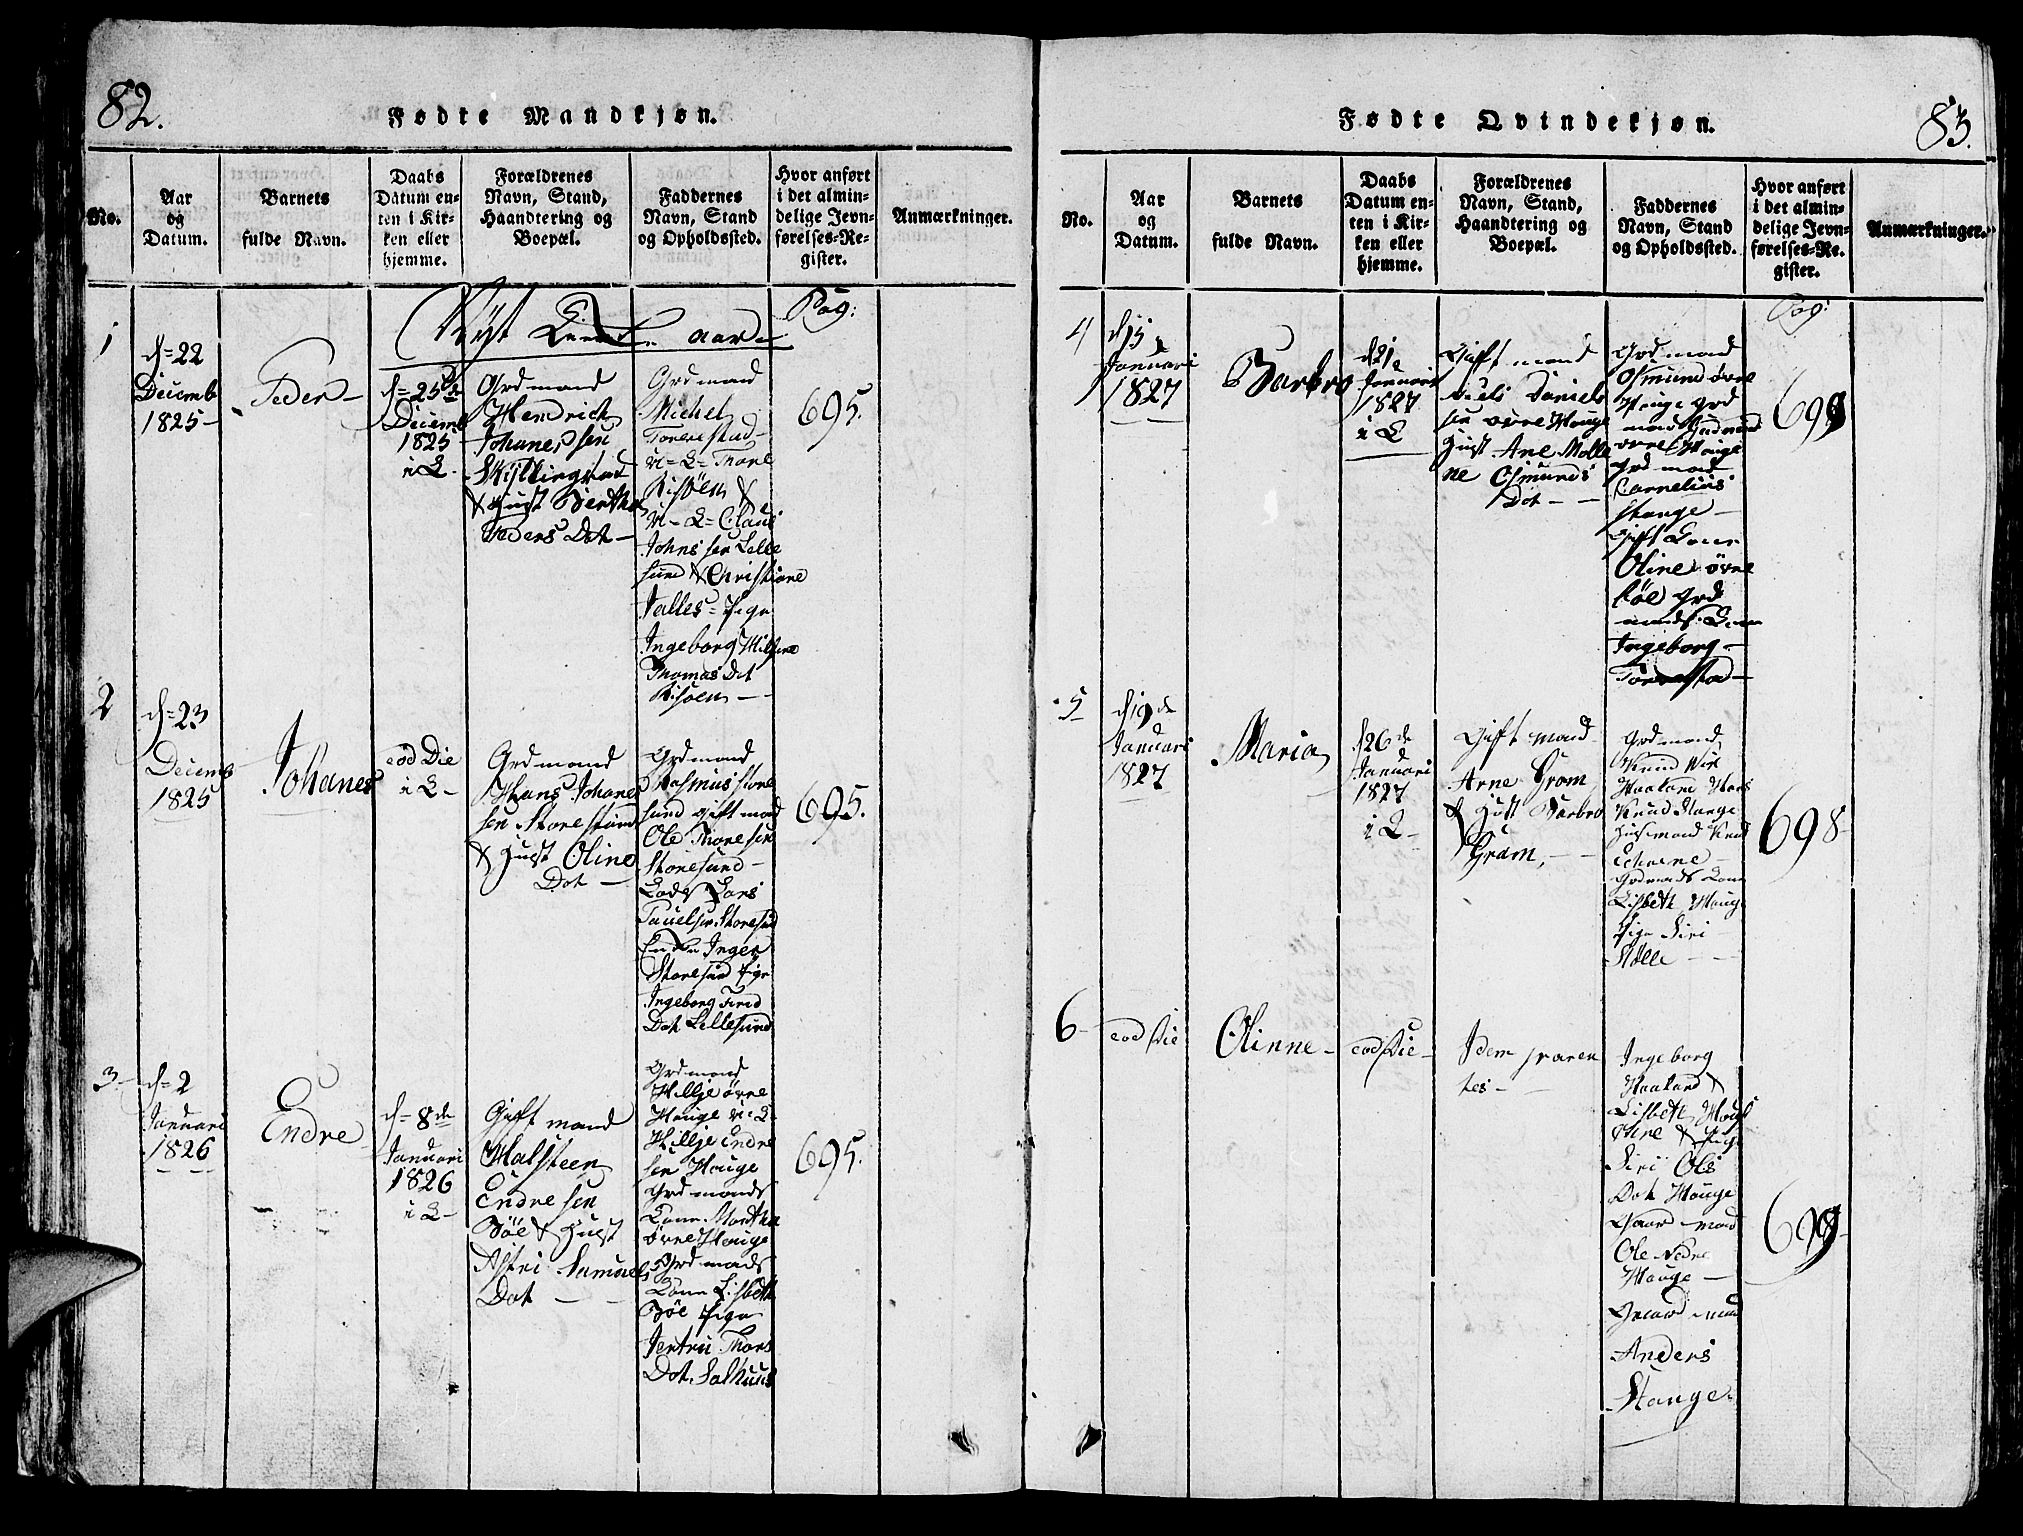 82.
Fødte Mandkjøn.
No.
Aar
og
Datum.
Barnets
fulde Navn.
Daabs
Datum en-
ten i Kir-
ken eller
hjemme.
Forældrenes
Navn, Stand,
Haandtering og
Boepæl.
Faddernes
Navn, Stand
og Opholdssted.
Hvor anført
i det almin-
delige Jevn-
førelses-Re-
gister.
Anmærkninger.
Nyt aar
Pag:
1
d= 22
Decemb
1825-
Peder-
d= 25de
Decemb
1825
i K
Grd mand
Hendrich
Johanes sen
& Hust Bertha
Peders Dot-
Grd mand
Michel
Torrestad-
Thore
Risöen &
Claus
Johns sen Lille
sund & Christiane
Salles= Pige
Ingeborg
Thomas Dot
Risöen-
695.
2
d= 23
Decemb
1825
Johanes
eod Die
i K-
Grd mand
Hans Johane
sen Storesund
& Hust Oline
Dot-
Grd mand
Rasmus Store
sund gift mand
Ole Thore sen
Storesund-
Lars
Pauelsen Storesund
Inger
Storesund Pige
Ingeborg
Dot Lillesund
695.
3-
d= 2
Januari
1826
Endre-
d= 8de
Januari
1826
i K-
Gift mand
Halsteen
Endre sen
Böe & Hust
Astri Samuels
Dot-
Grd mand
Hillje øvre
Houge
Hillje Endre
sen Houge
Grd mands
Kone Martha
øvre Houge
Grd mands
Kone Lisbeth
Böe Pige
Jertru Thors
Dot Salhuus
695.
Fødte Qvindekjøn.
83.
No.
Aar
og
Datum.
Barnets
fulde Navn.
Daabs
Datum en-
ten i Kir-
ken eller
hjemme.
Forældrenes
Navn, Stand,
Haandtering og
Boepæl.
Faddernes
Navn, Stand
og Opholdssted.
Hvor anført
i det almin-
delige Jevn-
førelses-Re-
gister.
Anmærkninger.
Pag:
4
d 15
Januari
1827
Barbro
d 21
Januari
1827
i K
Gift mand
Niels Daniels
sen øvre Houge
Hust Ane Malle
ne Osmunds
Dot-
Grd mand
Osmund øvre
Houge Grd
mand
øvre Houge
Grd mand
Cornelius
Stange-
Gift Kone
Oline øvre
Böe Grd
mands Kone
Ingeborg-
Torrestad-
699
5
d 19de
Januari
1827
Maria
d 26de
Januari
1827
i K-
Gift mand
Arne Gram
& Hust Barbro
Gram,
Grd mand
Knud
Haaland
Knud Stange
Husmand Knud
Grdmands Kone
Lisbeth Houge
Pige Siri
Stølle
698-
6-
eod Die
Olinne-
eod Die-
Idem paren
tes-
Ingeborg
Haaland &
Lisbeth Houge
øvre & Pige
Siri Ols
Dot Houge
Gaard mand
Ole Nedre
Houge-
Gaard mand
Anders
Stange.
699-